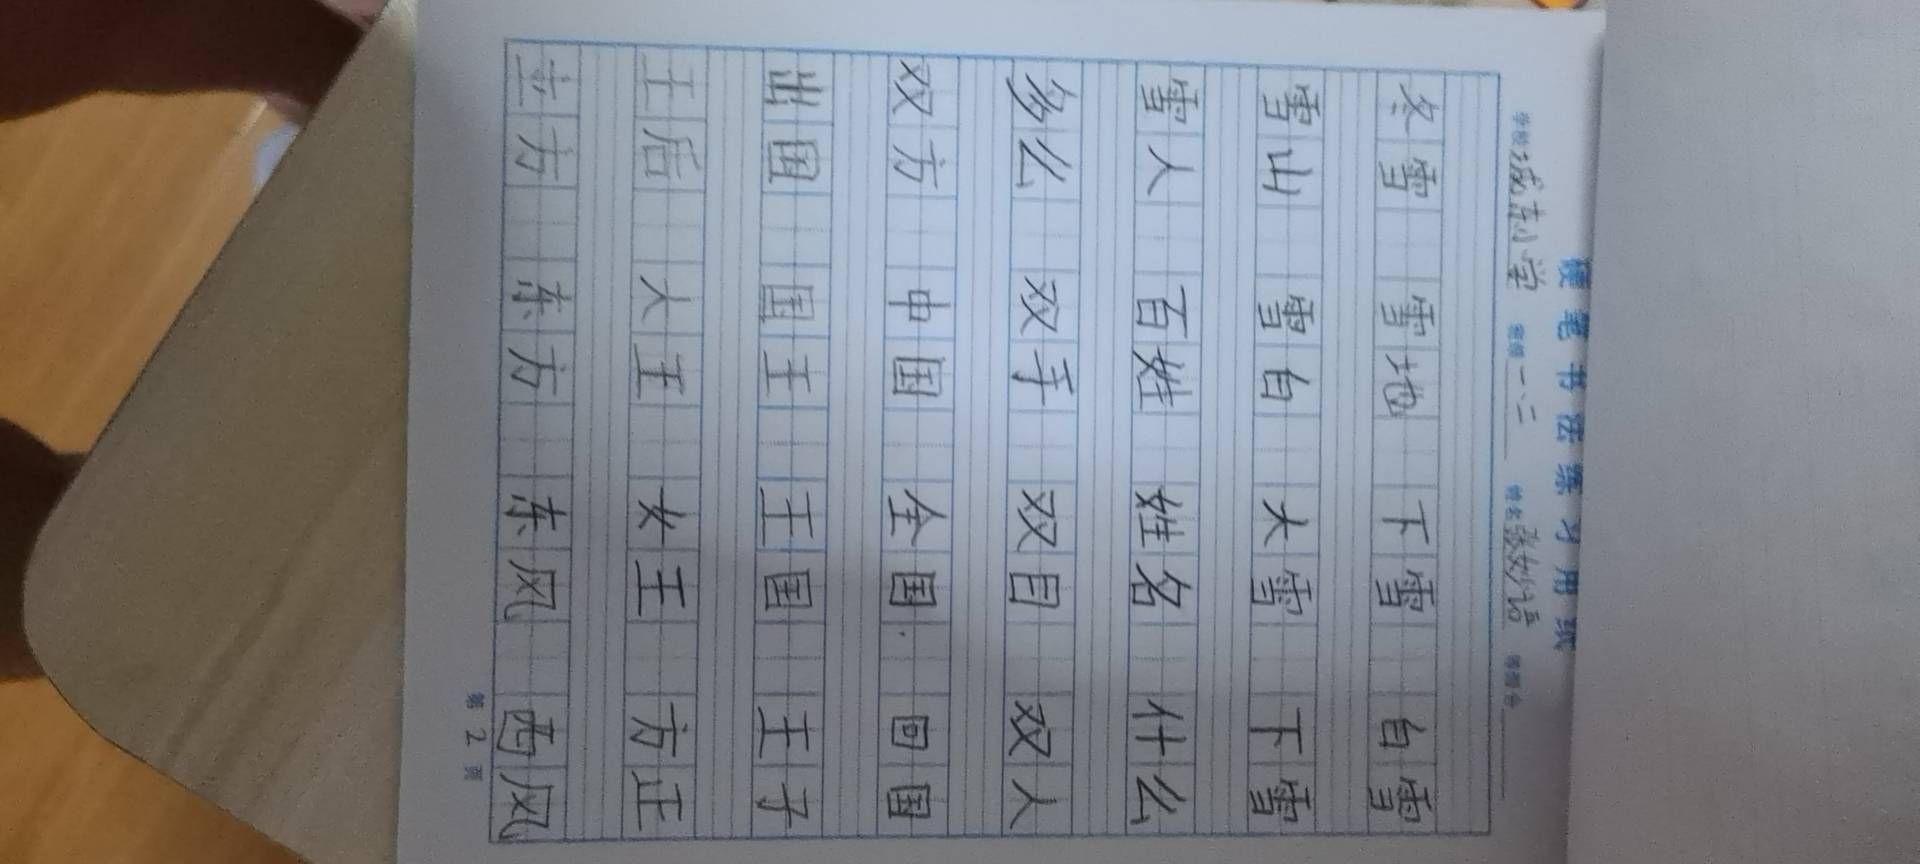 硬笔书法练习用纸
学校 城东小学 班级 一、二 姓名 张妙语
冬雪 雪地 下雪 白雪
雪山 雪白 大雪 下雪
雪人 百姓 姓名 什么
多么 双手 双目 双人
双方 中国 全国 回国
出国 国王 王国 王子
王后 大王 女王 方正
主方 东方 东风 西风
第 2 页